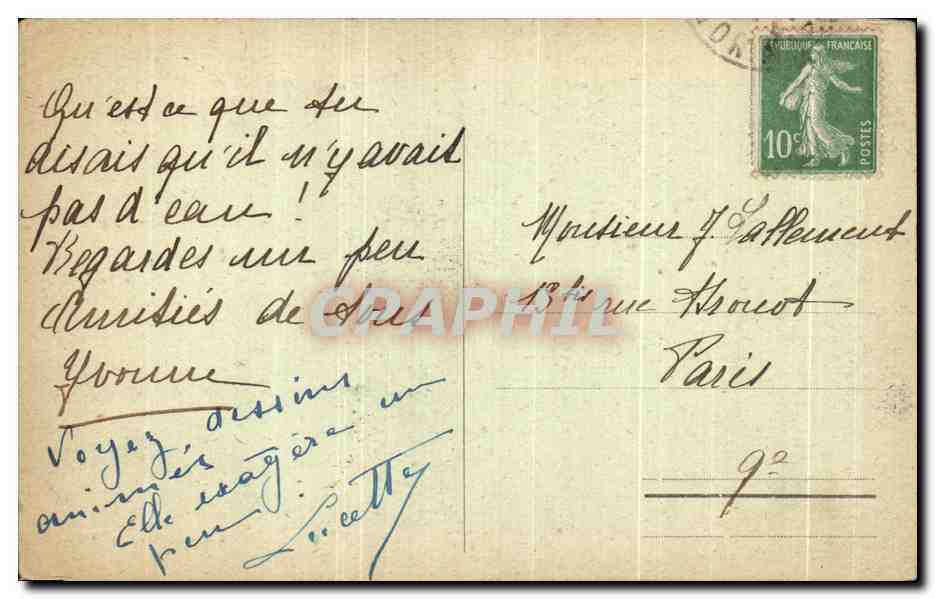 Qu'est ce que tu
disais qu'il n'y avait
pas d'eau !
Regardes un peu
Amitiés de tous
Yvonne
Voyez, dessins
animés
Elle exagère un
peu.
Lucette
RÉPUBLIQUE FRANÇAISE
10c
POSTES
Monsieur J. Lallement
13 bis rue Drouot
Paris
9e
CPAPHIL